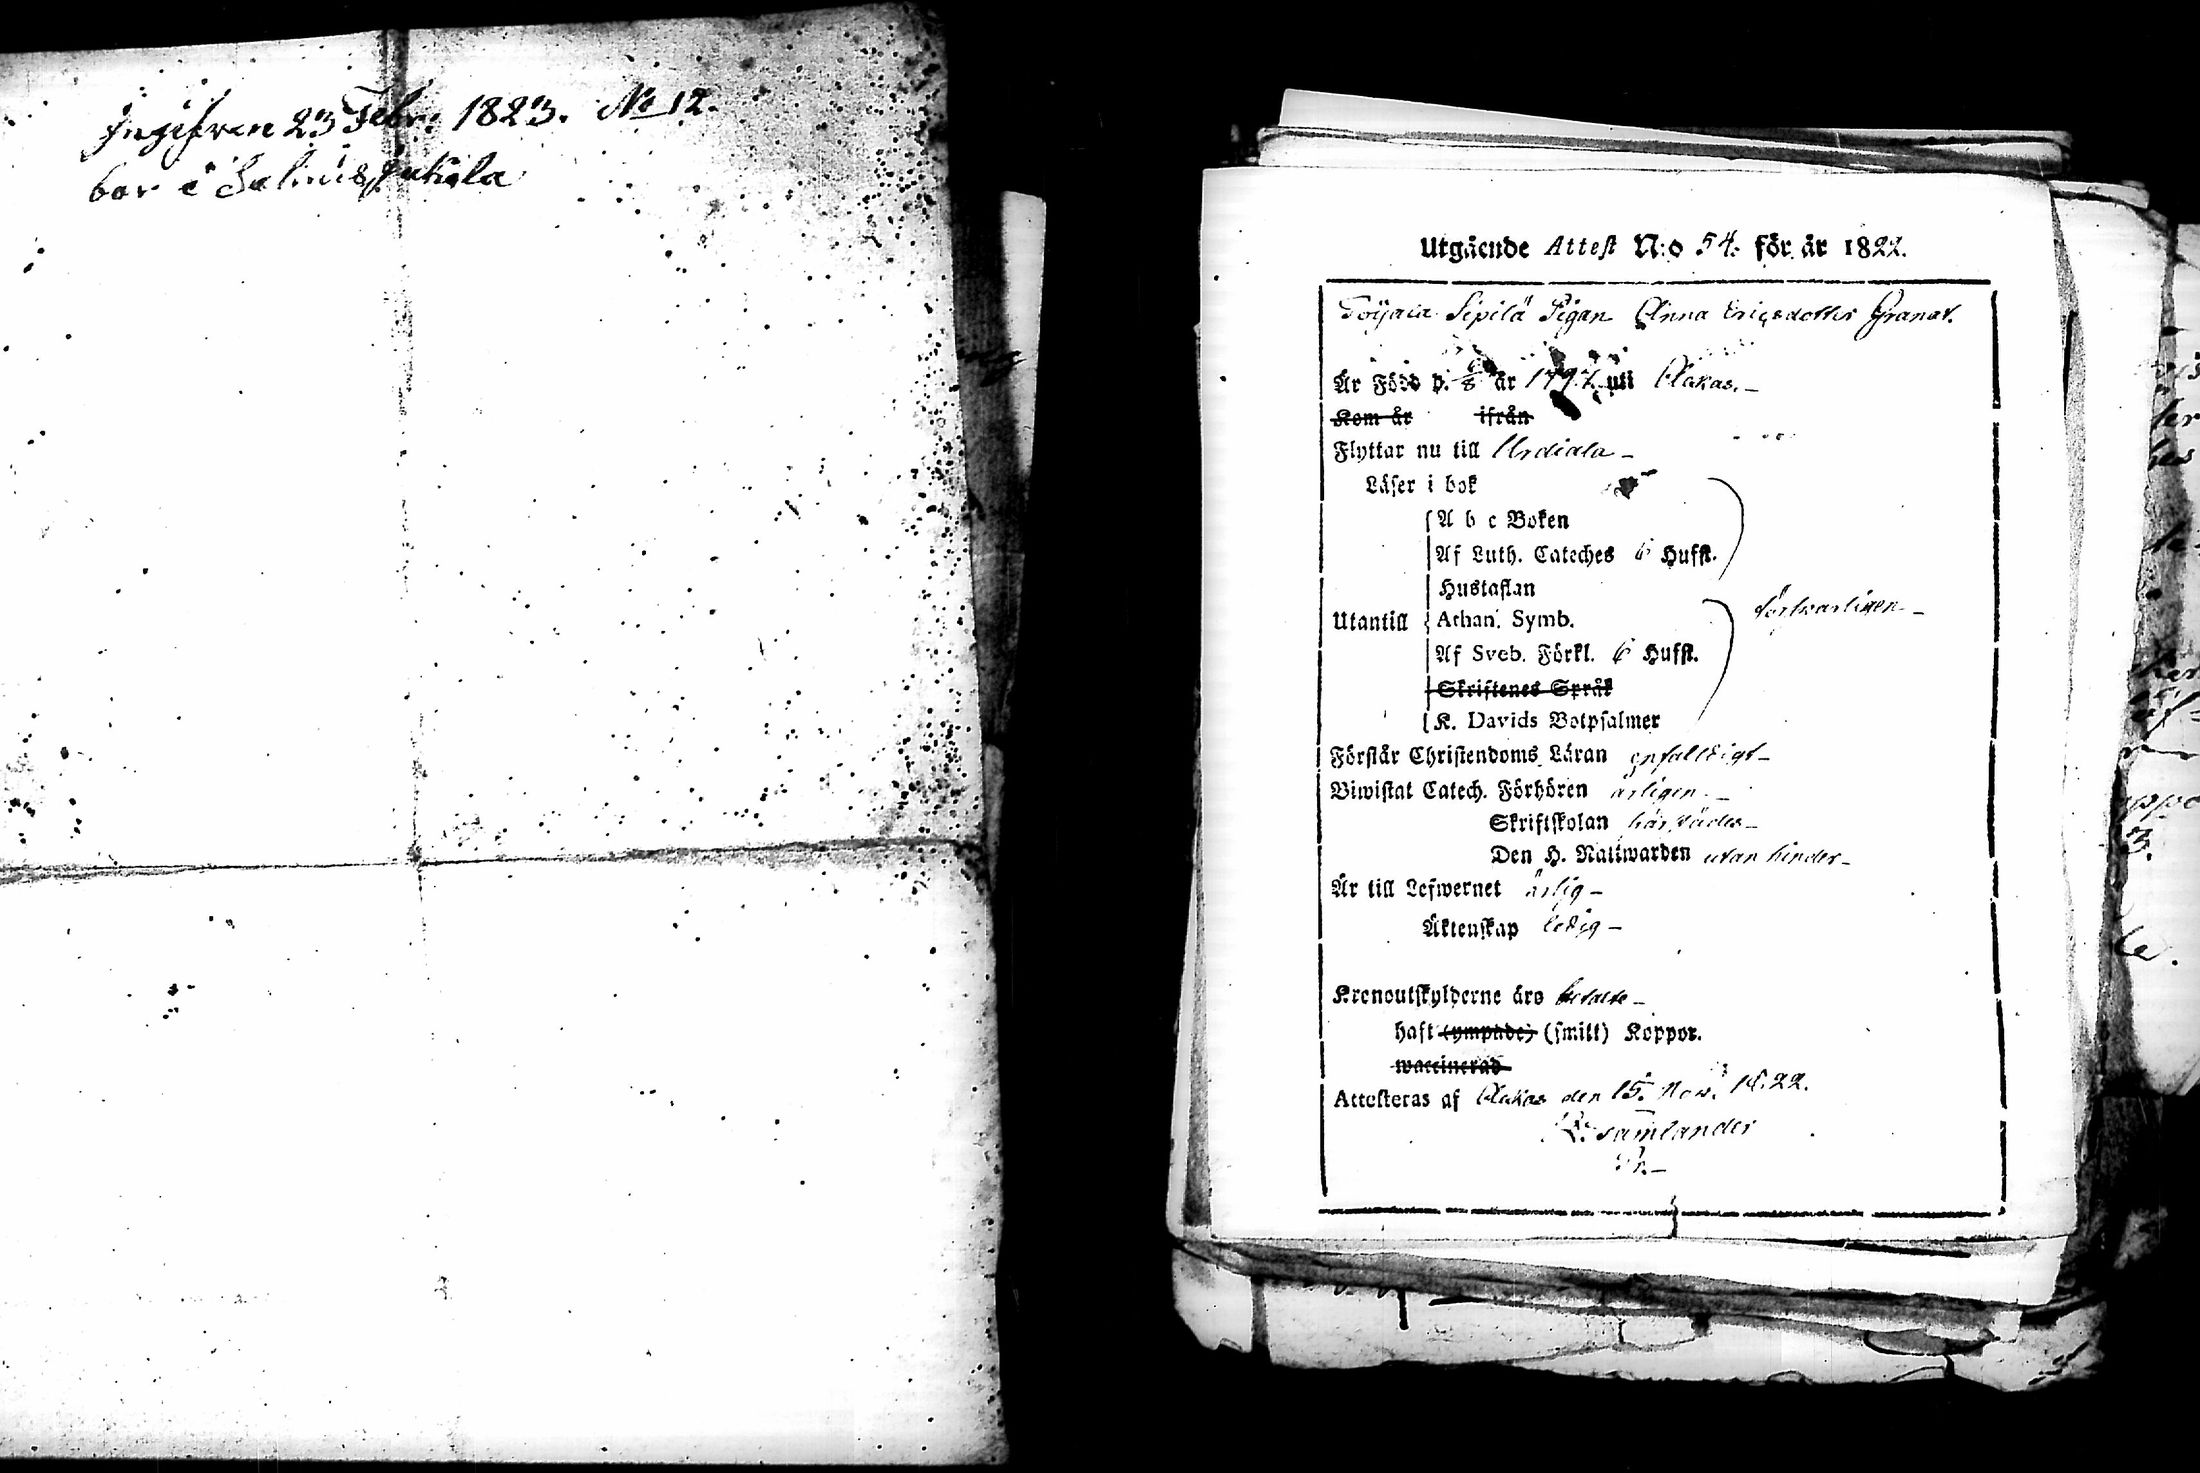 Ingifven 23 Febr. 1823. No 12.
bor i Salmis Jukola
Utgående Attest N:o 54. för år 1822.
Toijala Sipilä Pigan Anna Ericsdotter Granat.
Är Född d. 8 år 1797 uti Akkas. –
Kom år ifrån
Flyttar nu till Urdiala –
Läser i bok
A b c Boken
Af Luth. Cateches 6 Hufst.
Hustaflan
Utantill Athan. Symb.
försvarligen –
Af Sveb. Förkl. 6 Hufst.
Skriftenes Språk
K. Davids Botpsalmer
Förstår Christendoms Läran enfalldigt –
Biwistat Catech. Förhören årligen. –
Skriftskolan härstädes –
Den H. Nattwarden utan hinder –
Är till Lefwernet ärlig –
Äktenskap ledig –
Kronoutskylderne äro betalte –
haft (ympade) (smitt) Koppor.
waccinerad
Attesteras af Akkas den 15. Nov. 1822.
Samlander